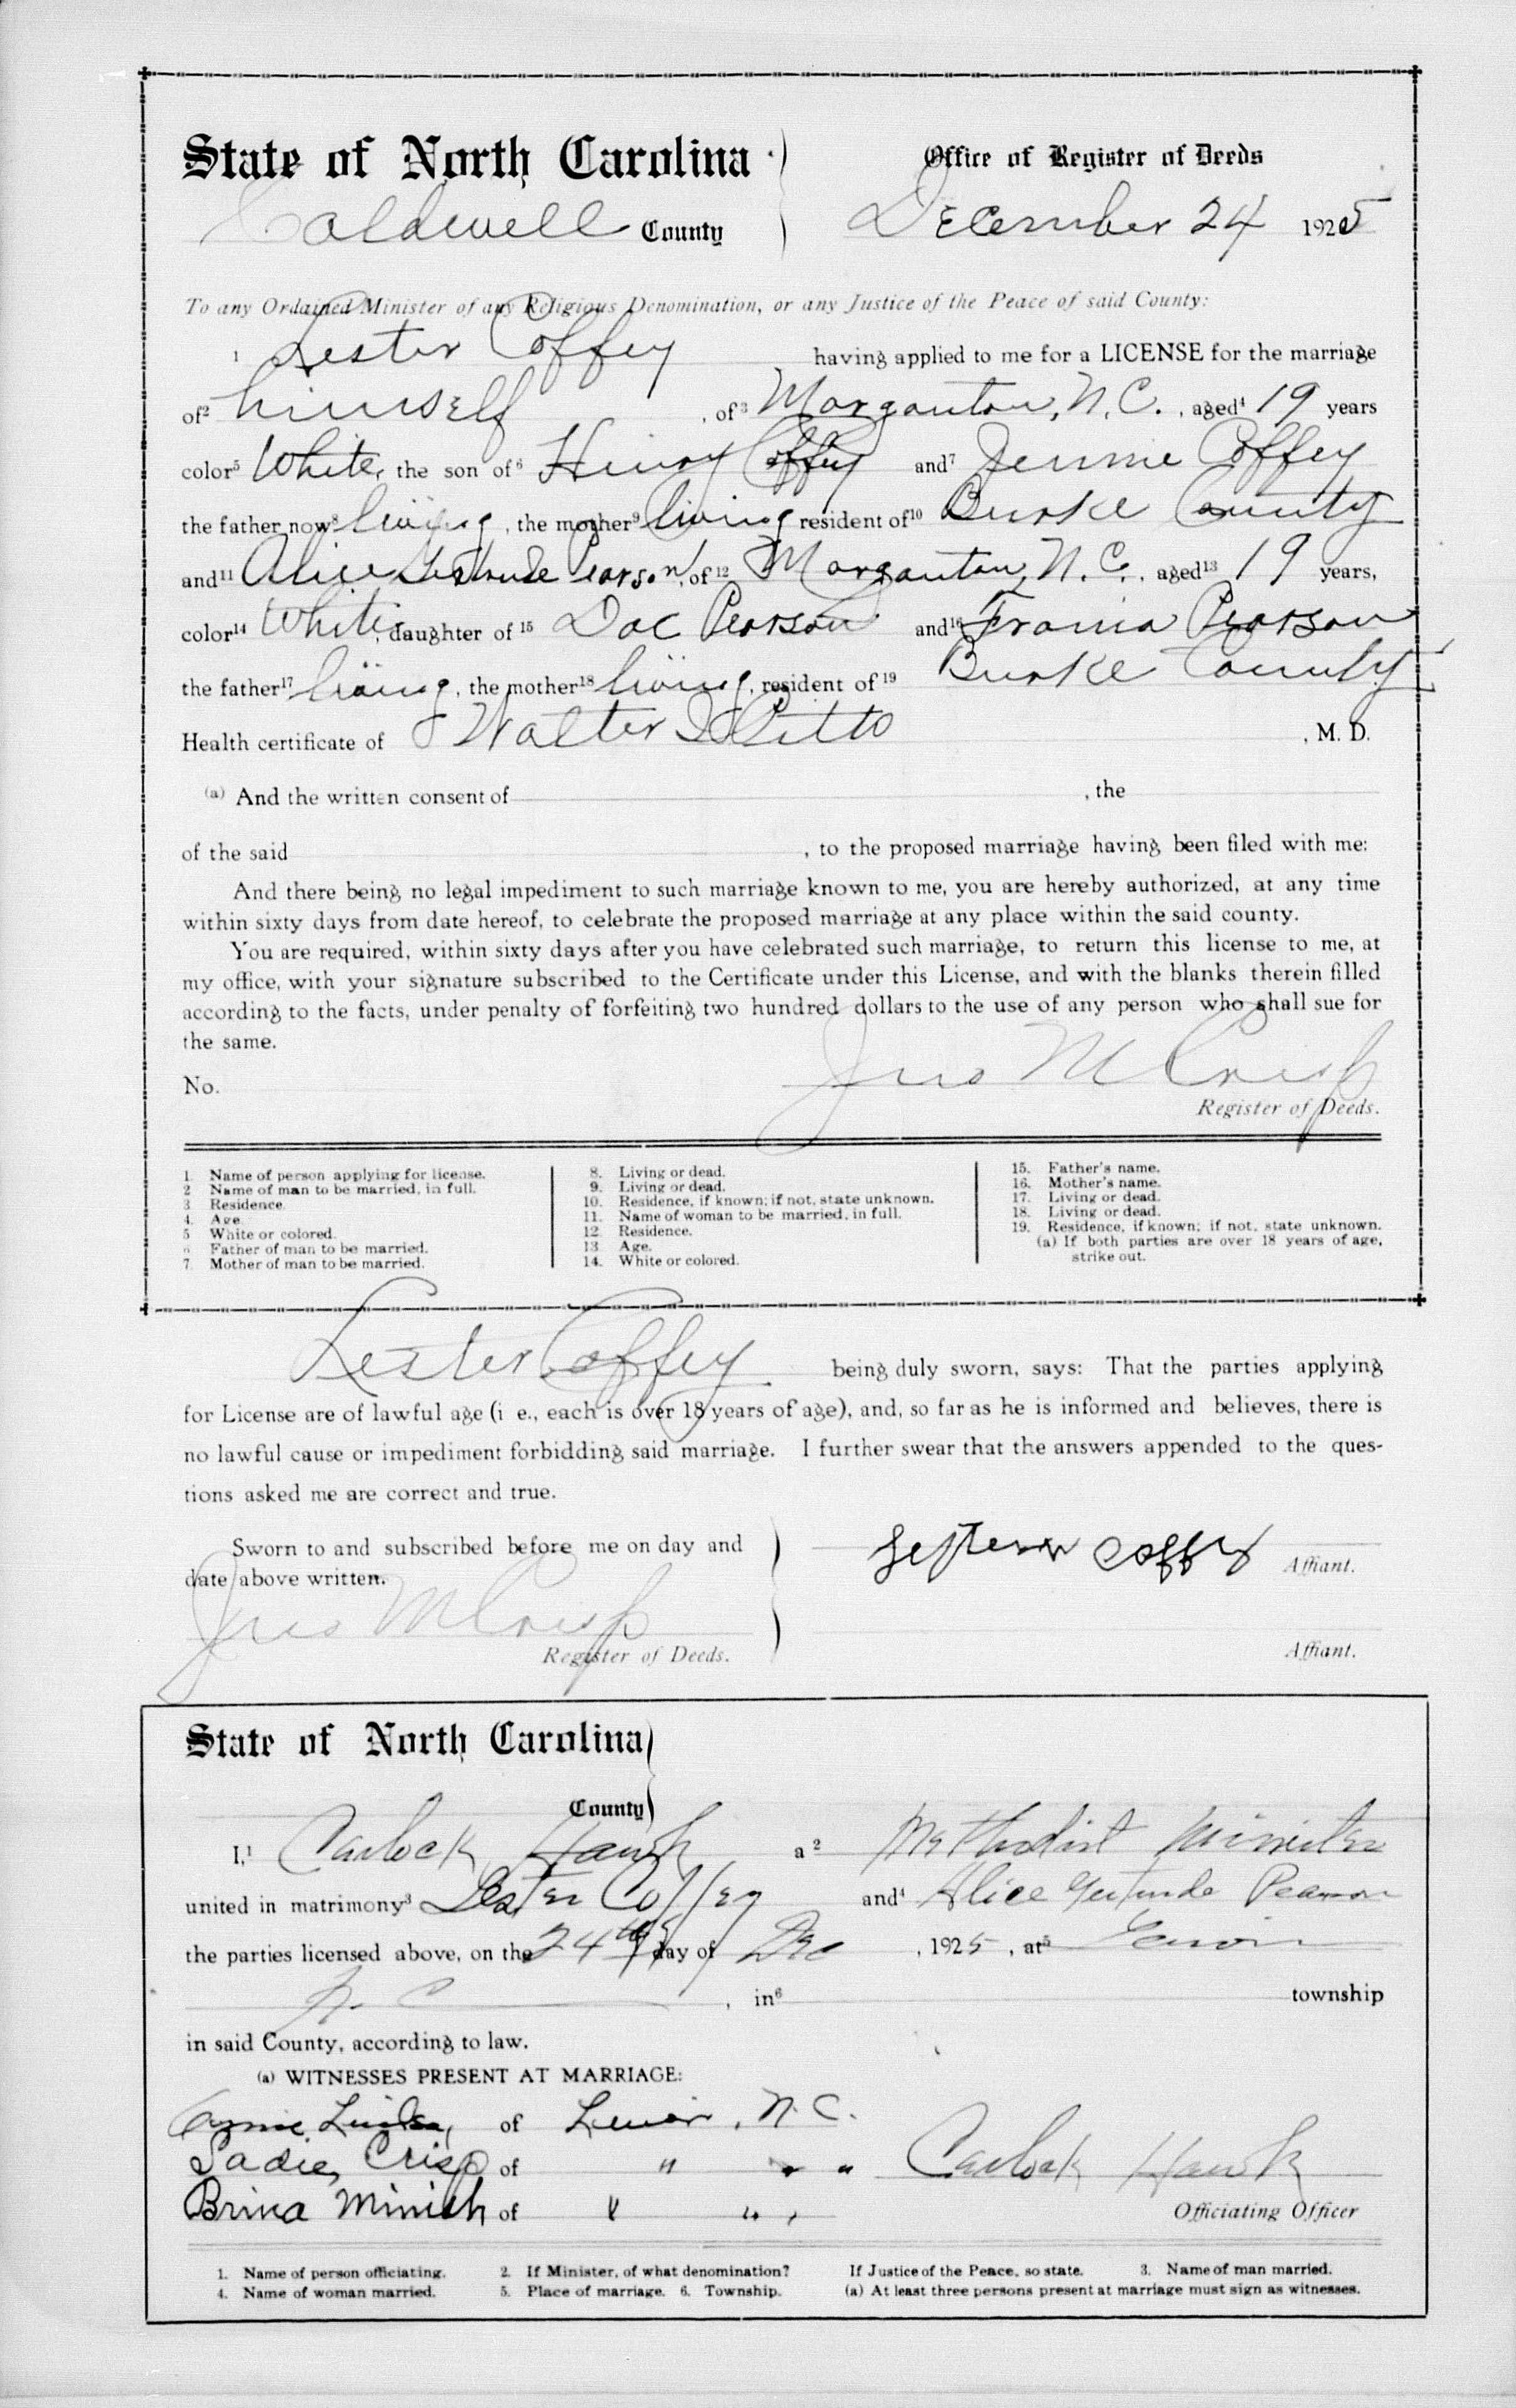 State of North Carolina
Caldwell County
Office of Register of Deeds
December 24 1925
To any Ordained Minister of any Religious Denomination, or any Justice of the Peace of said County:
1 Lester Coffey having applied to me for a LICENSE for the marriage
of2 himself, of3 Morganton, N.C., aged4 19 years
color5 White, the son of6 Henry Coffey and7 Jennie Coffey
the father now8 living, the mother9 living resident of10 Burke County
and11 Alice Gertrude Pearson, of12 Morganton, N.C., aged13 19 years,
color14 White, daughter of15 Doc Pearson and16 Pearson
the father17 living, the mother18 living, resident of19 Burke County
Health certificate of Walter, M. D.
(a) And the written consent of , the
of the said , to the proposed marriage having been filed with me:
And there being no legal impediment to such marriage known to me, you are hereby authorized, at any time
within sixty days from date hereof, to celebrate the proposed marriage at any place within the said county.
You are required, within sixty days after you have celebrated such marriage, to return this license to me, at
my office, with your signature subscribed to the Certificate under this License, and with the blanks therein filled
according to the facts, under penalty of forfeiting two hundred dollars to the use of any person who shall sue for
the same.
No.
Jno M Crisp
Register of Deeds.
1. Name of person applying for license.
2 Name of man to be married, in full.
3 Residence.
4. Age.
5 White or colored.
6 Father of man to be married.
7. Mother of man to be married.
8. Living or dead.
9. Living or dead.
10. Residence, if known; if not, state unknown.
11. Name of woman to be married, in full.
12 Residence.
13 Age.
14. White or colored.
15. Father's name.
16. Mother's name.
17. Living or dead.
18. Living or dead.
19. Residence, if known; if not, state unknown.
(a) If both parties are over 18 years of age,
strike out.
Lester Coffey being duly sworn, says: That the parties applying
for License are of lawful age (i e., each is over 18 years of age), and, so far as he is informed and believes, there is
no lawful cause or impediment forbidding said marriage. I further swear that the answers appended to the ques-
tions asked me are correct and true.
Sworn to and subscribed before me on day and
date above written.
Jno M Crisp
Register of Deeds.
Coffey Affiant.
Affiant.
State of North Carolina
County
I,1 Carlock Hawk a2 Methodist Minister
united in matrimony3 Lester Coffey and4 Alice Gertrude Pearson
the parties licensed above, on the 24th day of Dec, 1925, at5 Lenoir
N. C , in6 township
in said County, according to law.
(a) WITNESSES PRESENT AT MARRIAGE:
of Lenoir, N. C.
Sadie Crisp of " " "
Brina Minish of " " "
Carlock Hawk
Officiating Officer
1. Name of person officiating. 2. If Minister, of what denomination? If Justice of the Peace, so state. 3. Name of man married.
4. Name of woman married. 5. Place of marriage. 6. Township. (a) At least three persons present at marriage must sign as witnesses.